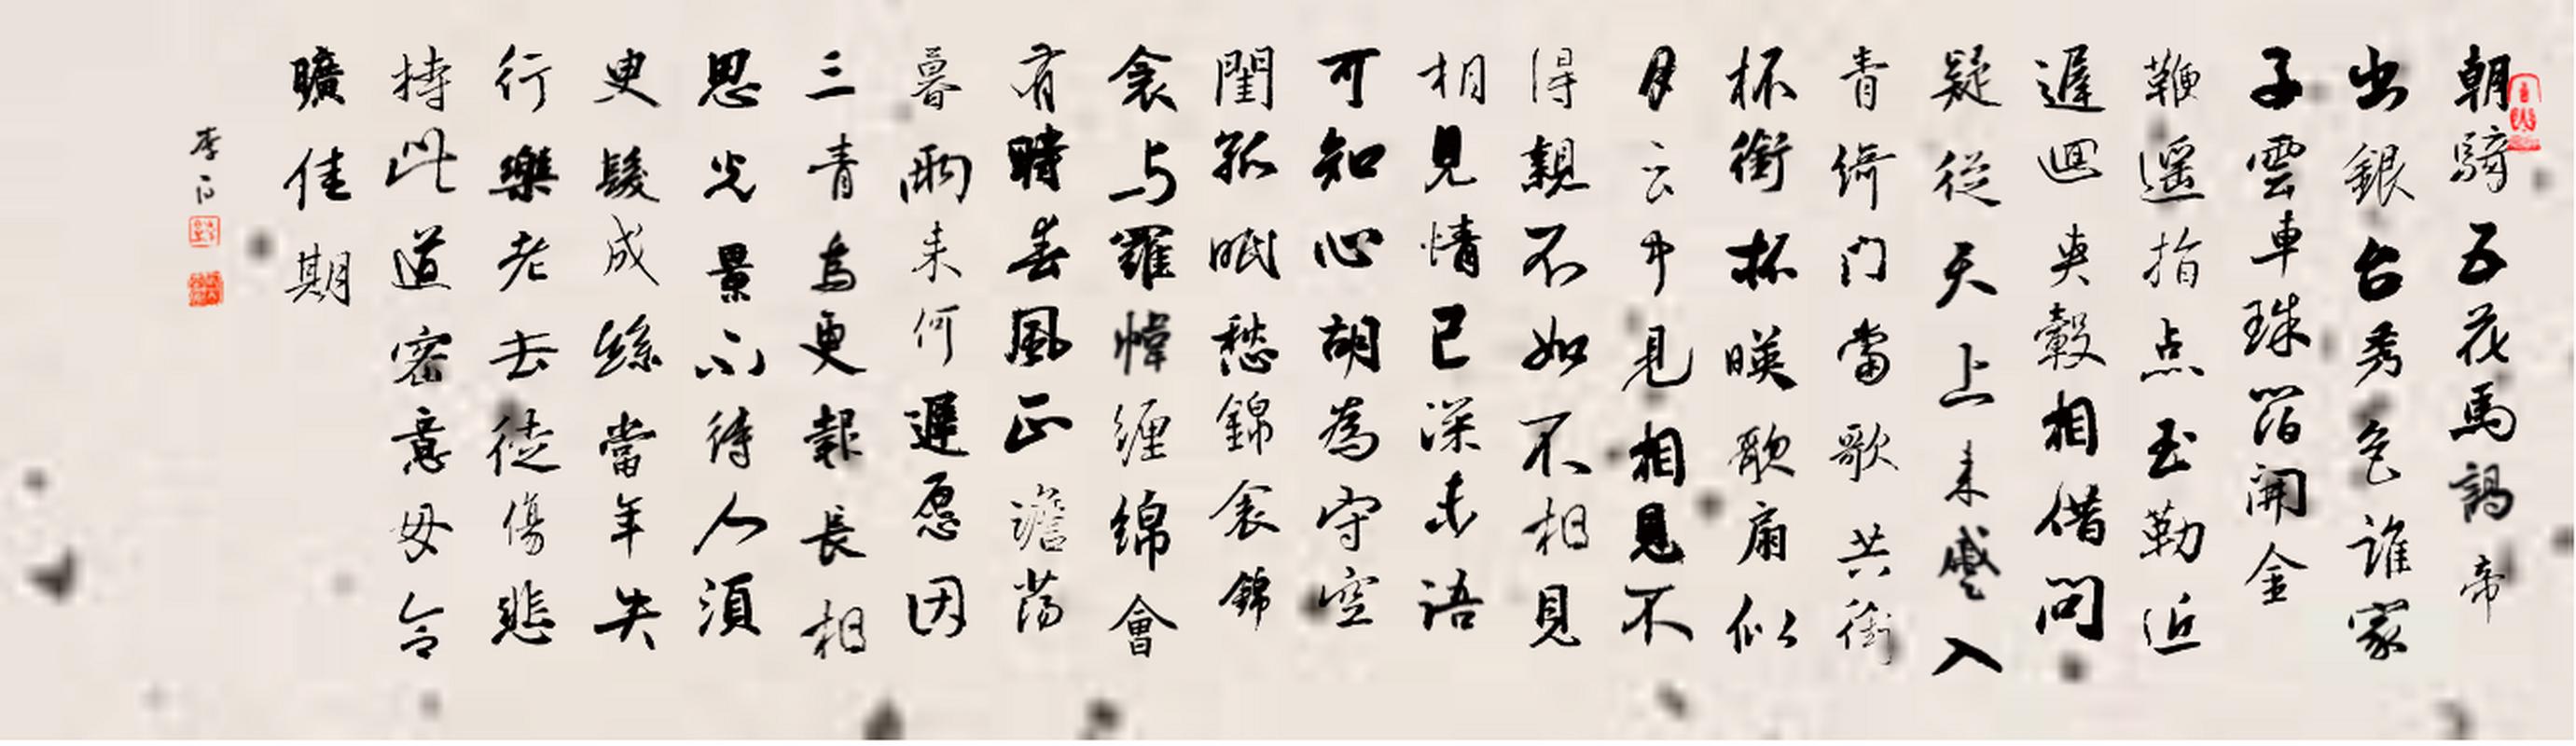 朝騎五花馬謁帝
出銀台秀色誰家
子雲車珠箔開金
鞭遥指点玉勒近
遲迴夾轂相借問
疑從天上来蹙入
青綺门當歌共銜
杯銜杯暎歌扇似
月云中見相見不
得親不如不相見
相見情已深未語
可知心胡為守空
閨孤眠愁錦衾錦
衾与羅幃缠绵會
有時春風正澹蕩
暮雨来何遲愿因
三青鳥更報長相
思光景不待人須
臾髮成絲當年失
行樂老去徒傷悲
持此道密意毋令
曠佳期
李白